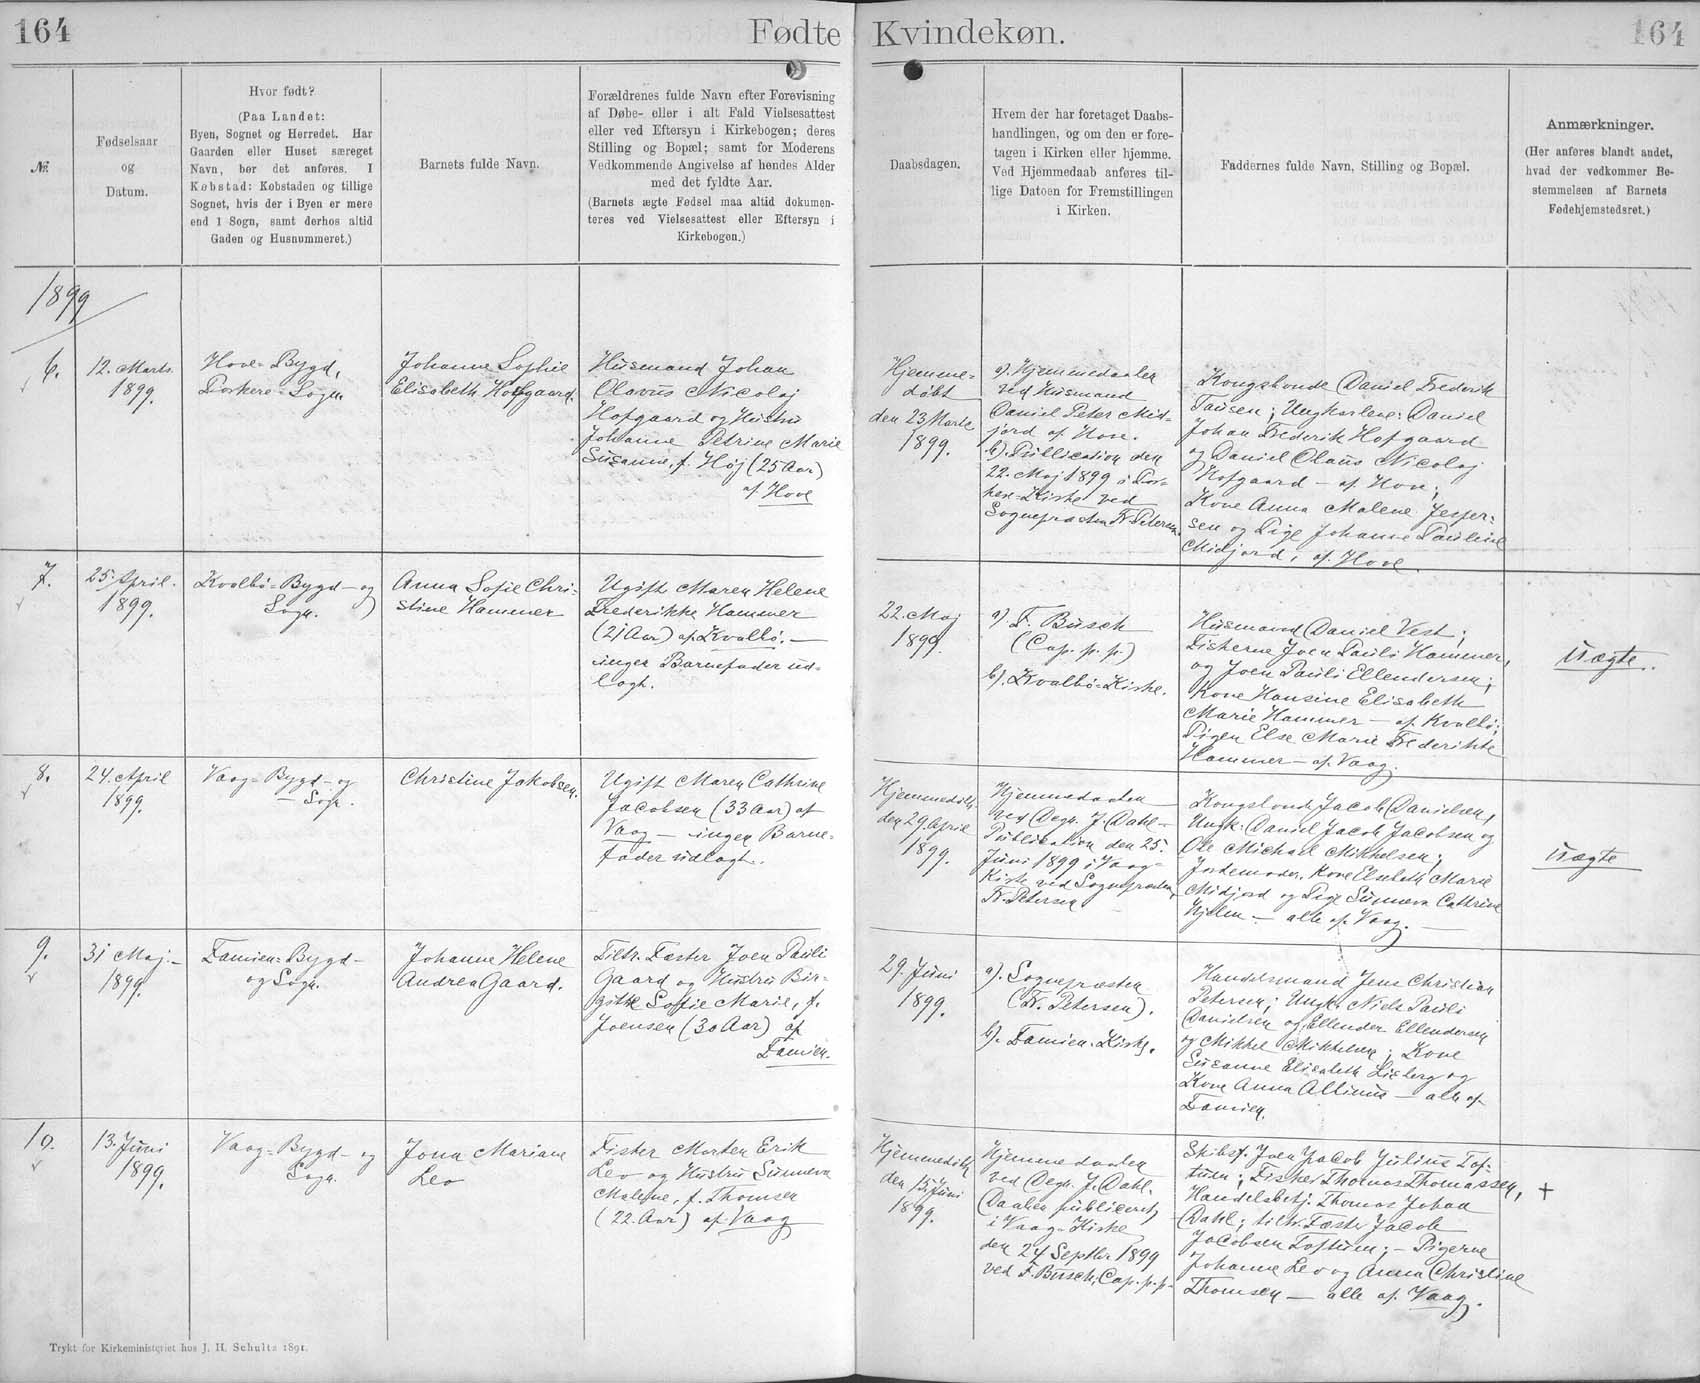 164
Fødte
Kvindekøn.
164
№
Fødselsaar
og
Datum.
Hvor født?
(Paa Landet:
Byen, Sognet og Herredet. Har
Gaarden eller Huset særeget
Navn, bør det anføres. I
Købstad: Købstaden og tillige
Sognet, hvis der i Byen er mere
end 1 Sogn, samt derhos altid
Gaden og Husnummeret.)
Barnets fulde Navn.
Forældrenes fulde Navn efter Forevisning
af Døbe- eller i alt Fald Vielsesattest
eller ved Eftersyn i Kirkebogen; deres
Stilling og Bopæl; samt for Moderens
Vedkommende Angivelse af hendes Alder
med det fyldte Aar.
(Barnets ægte Fødsel maa altid dokumen-
teres ved Vielsesattest eller Eftersyn i
Kirkebogen.)
Daabsdagen.
Hvem der har foretaget Daabs-
handlingen, og om den er fore-
tagen i Kirken eller hjemme.
Ved Hjemmedaab anføres til-
lige Datoen for Fremstillingen
i Kirken.
Faddernes fulde Navn, Stilling og Bopæl.
Anmærkninger.
(Her anføres blandt andet,
hvad der vedkommer Be-
stemmelsen af Barnets
Fødehjemstedsret.)
1899
6.
12. Marts
1899.
Hove-Bygd,
Porkere-Sogn
Johanne Sophie
Elisabeth Hofgaard.
Husmand Johan
Olavus Nicolaj
Hofgaard og Hustru
Johanne Petrine Marie
Susanne, f. Høj (25 Aar)
af Hove
Hjemme-
døbt
den 23 Marts
1899.
a). Hjemmedaaben
ved Husmand
Daniel Peter Mid-
jord af Hove.
b). Publication den
22. Maj 1899 i Por-
kere-Kirke ved
Sognepræsten Fr. Petersen.
Kongsbonde Daniel Frederik
Tausen; Ungkarlene: Daniel
Johan Frederik Hofgaard
og Daniel Olaus Nicolaj
Hofgaard - af Hove;
Kone Anna Malene Jesper-
sen og Pige Johanne Pauline
Midjord, af Hove.
7.
25. April.
1899.
Kvalbø-Bygd - og
Sogn.
Anna Sofie Chri-
stine Hammer
Ugift Maren Helene
Frederikke Hammer
(21 Aar) af Kvalbø. -
ingen Barnefader ud-
lagt.
22. Maj
1899.
a) F. Busch
(Cap. p. p.)
b). Kvalbø-Kirke.
Husmand Daniel Vest;
Fiskerne Joen Pauli Hammer,
og Joen Pauli Ellendersen;
Kone Hansine Elisabeth
Marie Hammer - af Kvalbø;
Pigen Else Marie Frederikke
Hammer - af Vaag.
Uægte.
8.
24. April
1899.
Vaag-Bygd - og
- Sogn.
Christine Jakobsen.
Ugift Maren Cathrine
Jacobsen (33 Aar) af
Vaag - ingen Barne-
fader udlagt.
Hjemmedøbt
den 29. April
1899.
Hjemmedaaben
ved Degn. J. Dahl -
Publication den 25.
Juni 1899 i Vaag-
Kirke ved Sognepræsten
Fr. Petersen
Kongsbonde Jacob Danielsen,
Ungk: Daniel Jacob Jacobsen og
Ole Michael Mikkelsen;
Jordemoder, Kone Elsebeth Marie
Midjord og Pige Sunneva Cathrine
Hjelm - alle af Vaag. -
Uægte
9.
31 Maj. -
1899.
Famien-Bygd -
og Sogn.
Johanne Helene
Andrea Gaard.
Tiltr. Fæster Joen Pauli
Gaard og Hustru Bir-
gitte Sofie Marie, f.
Joensen (30 Aar) af
Famien.
29. Juni
1899.
a). Sognepræsten
(Fr. Petersen).
b). Famien-Kirke.
Handelsmand Jens Christian
Petersen; Ungk. Niels Pauli
Danielsen og Ellender Ellendersen
og Mikkel Mikkelsen; Kone
Susanne Elisabeth Lisberg og
Kone Anna Allinus - alle af
Famien.
10.
13. Juni
1899.
Vaag-Bygd - og
Sogn.
Jona Mariane
Leo
Fisker Morten Erik
Leo og Hustru Sunneva
Malene, f. Thomsen
(22. Aar) af Vaag
Hjemmedøbt
den 15. Juni
1899.
Hjemmedaaben
ved Degn. J. Dahl.
Daaben publiceret
i Vaag-Kirke
den 24 Septbr 1899
ved F. Busch, Cap. p. p.
Skibsf. Joen Jacob Julius Tof-
tum; Fisker Thomas Thomassen,
Handelsbetj. Thomas Johan
Dahl; tiltr. Fæster Jacob
Jacobsen Toftum; - Pigerne
Johanne Leo og Anna Christine
Thomsen - alle af Vaag.
+
Trykt for Kirkeministeriet hos J. H. Schultz 1891.